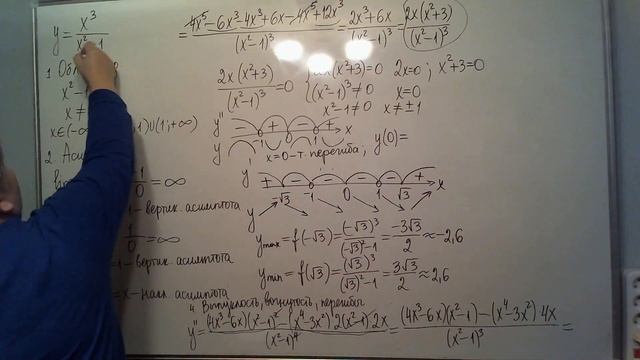 y = x³/(x²-1)
1. Обл
x² -
x ≠
x∈(-∞ ,1)∪(1;+∞)
2. Аси
-1/0 = ∞
1 - вертик. асимптота
1/0 = ∞
=1 - вертик. асимптота
=x - накл. асимптота
= (4x⁵-6x³-4x³+6x-4x⁵+12x³)/(x²-1)³ = (2x³+6x)/(x²-1)³ = 2x(x²+3)/(x²-1)³
2x(x²+3)/(x²-1)³ = 0 { 2x(x²+3)=0 2x=0 ; x²+3=0
(x²-1)³≠0 x=0
x²-1≠0 x≠±1
y'' − + − + x
y -1 0 1
x=0-т. перегиба; y(0)=
y' + − − − − + x
y -√3 -1 0 1 √3
y max = f(-√3) = (-√3)³/((-√3)²-1) = -3√3/2 ≈ -2,6
y min = f(√3) = (√3)³/((√3)²-1) = 3√3/2 ≈ 2,6
4. Выпуклость, вогнутость, перегибы
y'' = ((4x³-6x)(x²-1)²-(x⁴-3x²)·2(x²-1)·2x)/(x²-1)⁴ = ((4x³-6x)(x²-1)-(x⁴-3x²)·4x)/(x²-1)³ =